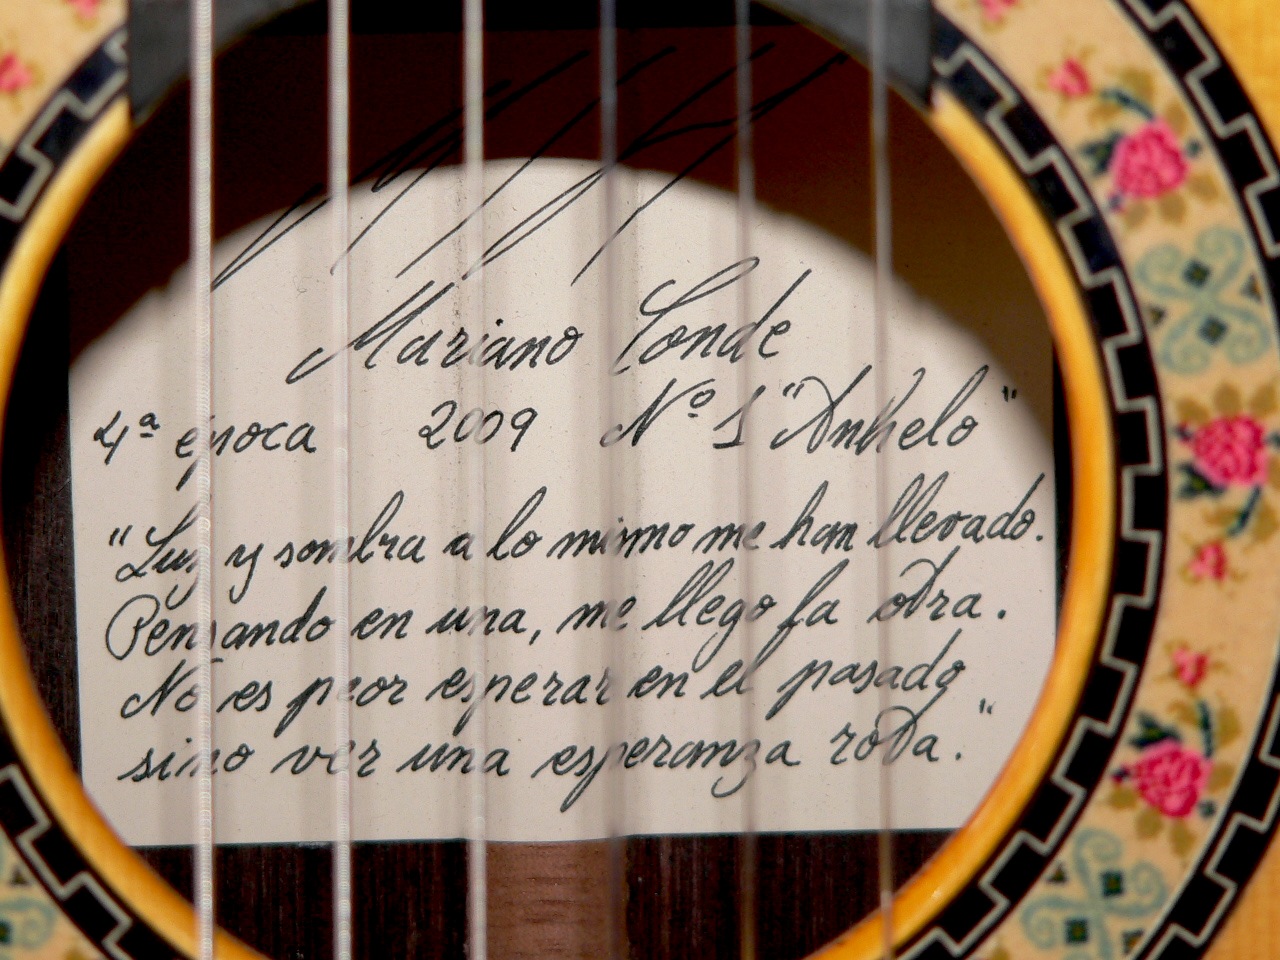 Mariano Conde
4ª época 2009 Nº 1 "Anhelo"
"Luz y sombra a lo mismo me han llevado.
Pensando en una, me llego la otra.
No es peor esperar en el pasado
sino ver una esperanza rota."